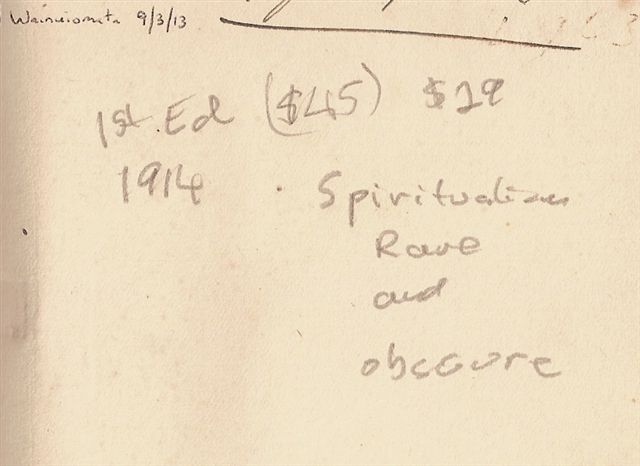 Wainuiomata 9/3/13
1st Ed ($45) $29
1914 Spiritualism
Rare
and
obscure